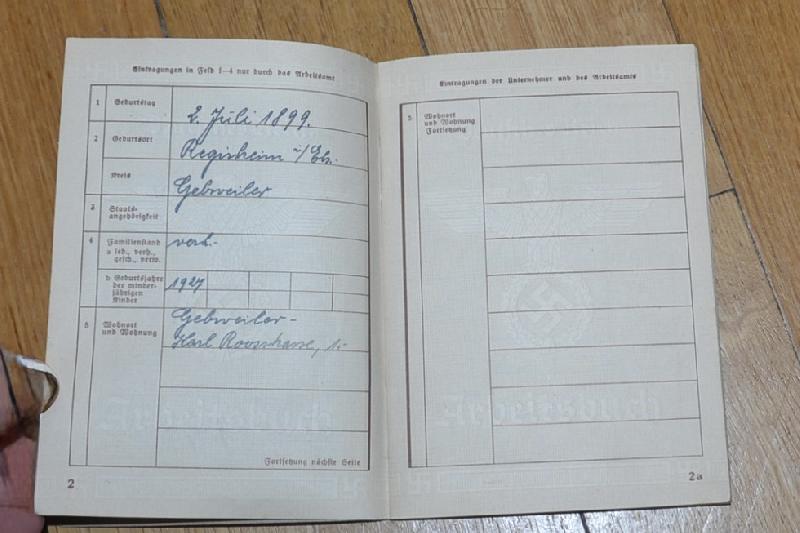 Eintragungen in Feld 1–4 nur durch das Arbeitsamt
1 Geburtstag 2. Juli 1899.
2 Geburtsort Regisheim i/Els.
Kreis Gebweiler
3 Staats-
angehörigkeit
4 Familienstand verh.
a led., verh.,
gesch., verw.
b Geburtsjahre 1927
der minder-
jährigen
Kinder
5 Wohnort Gebweiler-
und Wohnung Karl Roosstrasse, 1-
Arbeitsbuch
Fortsetzung nächste Seite
2
Eintragungen der Unternehmer und des Arbeitsamts
5 Wohnort
und Wohnung
Fortsetzung
Arbeitsbuch
2a